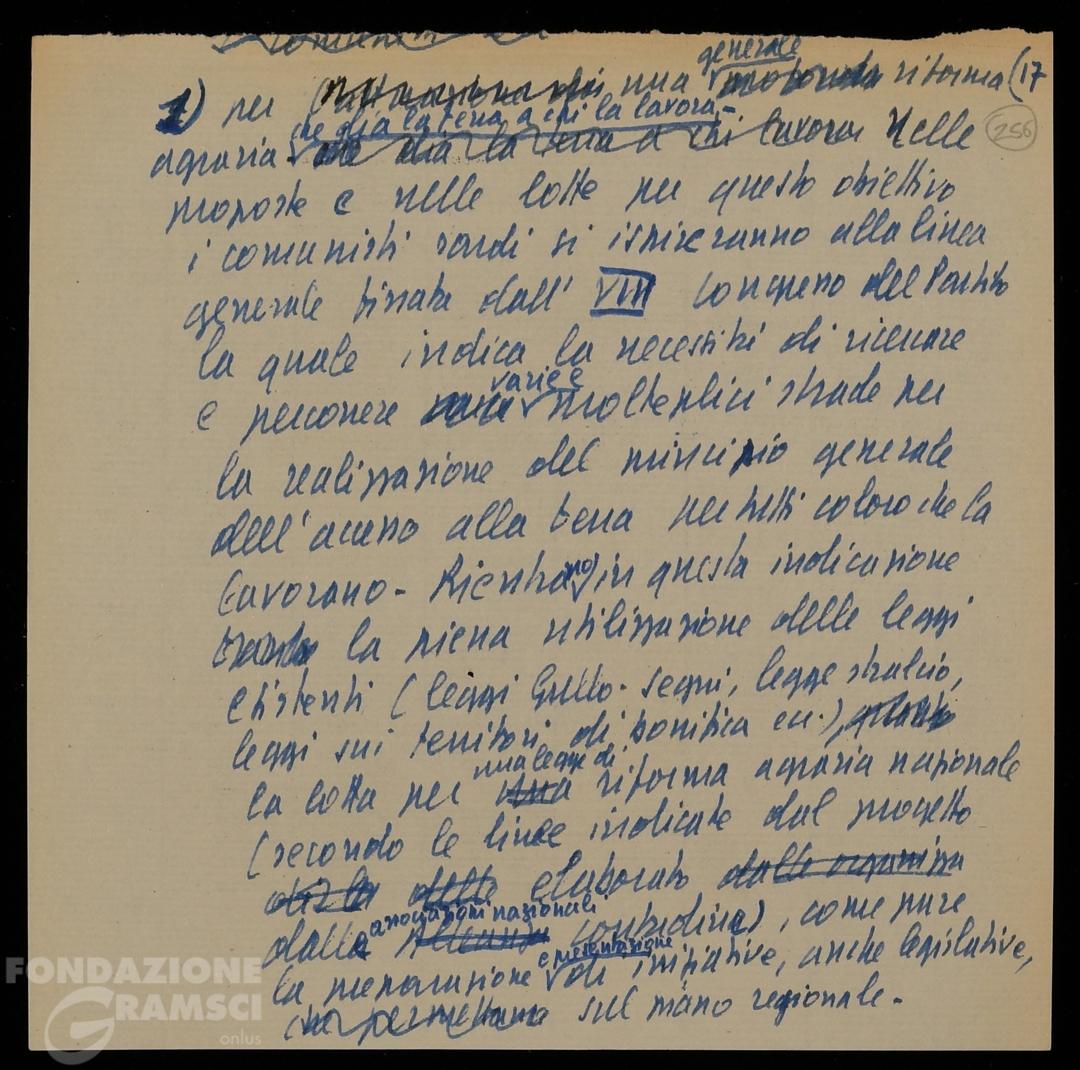 generale
1) per (~~attuazione di~~) una riforma (17
che dia la terra a chi la lavora -
agraria ~~che dia la terra a chi lavora~~ Nelle (256)
proposte e nelle lotte per questo obiettivo
i comunisti sardi si ispireranno alla linea
generale fissata dall' VIII Congresso del Partito
la quale indica la necessità di ricercare
varie e
e percorrere molteplici strade per
la realizzazione del principio generale
dell'accesso alla terra per tutti coloro che la
lavorano - Rientrano in questa indicazione
la piena utilizzazione delle leggi
esistenti (leggi Gullo-Segni, legge stralcio,
leggi sui territori di bonifica ecc.),
una legge di
la lotta per ~~una~~ riforma agraria nazionale
(secondo le linee indicate dal progetto
~~delle~~ elaborato ~~dalle organizza~~
associazioni nazionali
dalle ~~Alleanza~~ contadine), come pure
e presentazione
la preparazione di iniziative, anche legislative,
~~che permettano~~ sul piano regionale -
FONDAZIONE
GRAMSCI
onlus